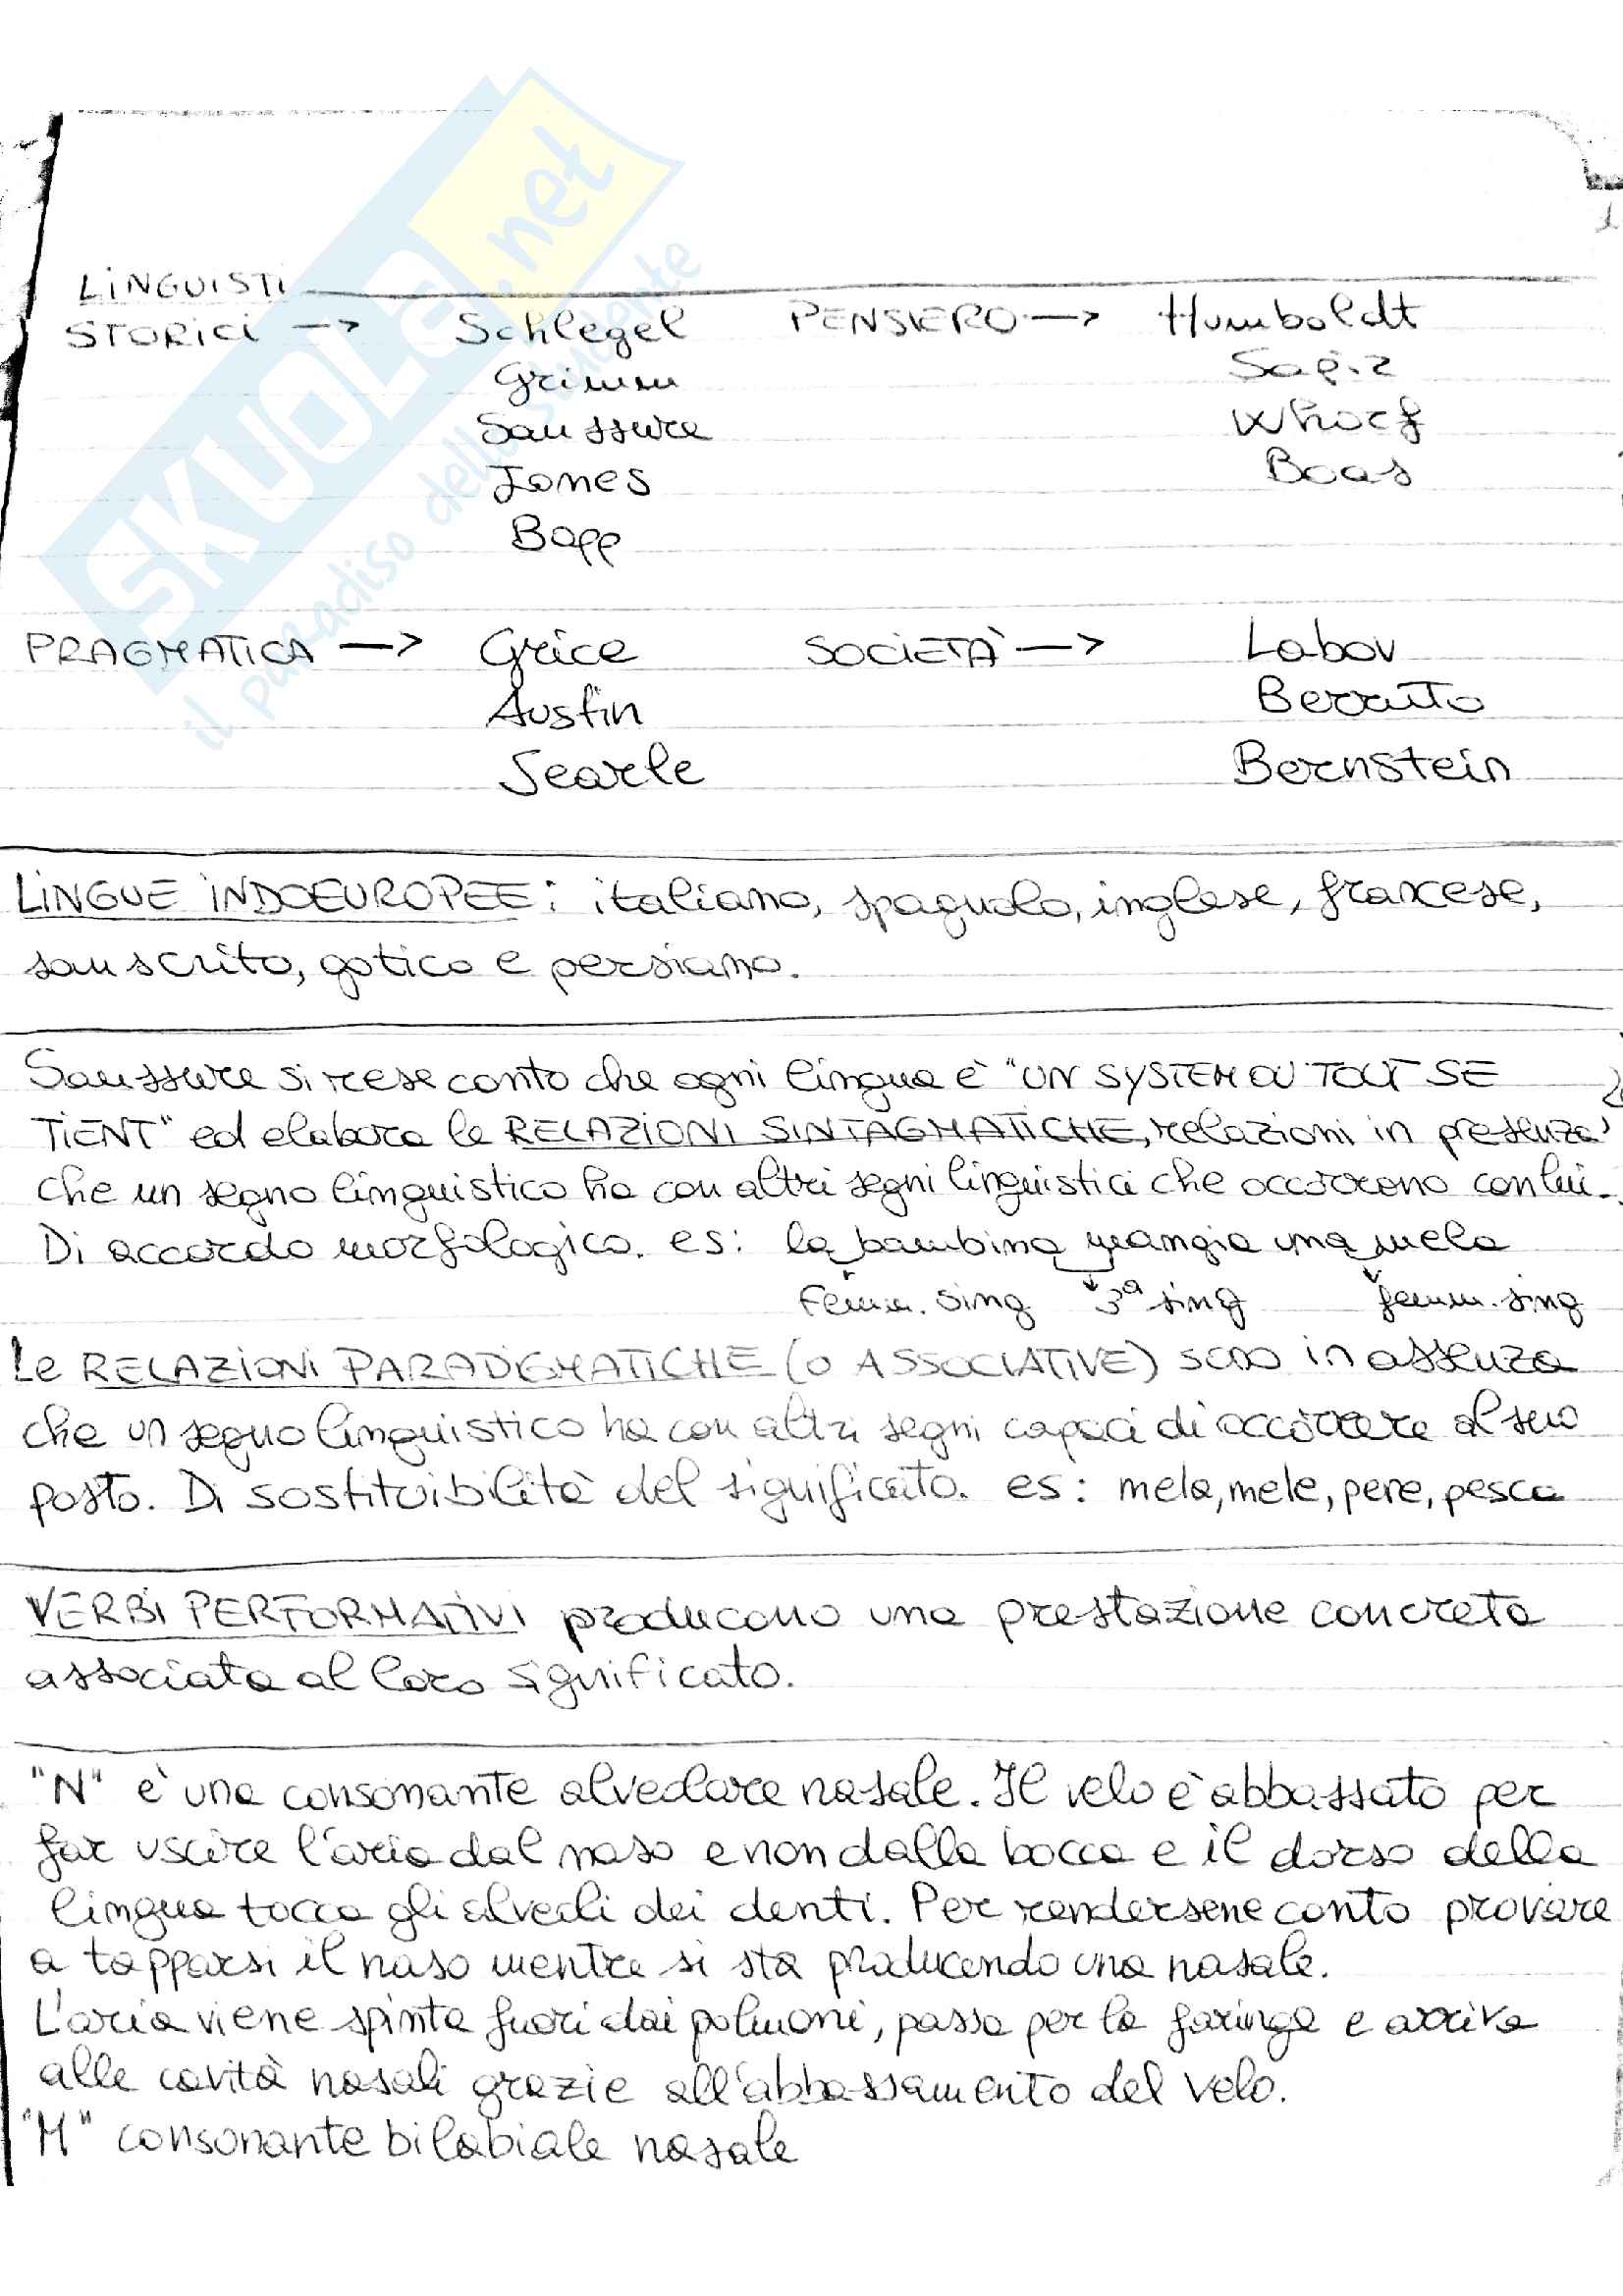 1
LINGUISTI
STORICI → Schlegel PENSIERO → Humboldt
Grimm Sapir
Saussure Whorf
Jones Boas
Bopp
PRAGMATICA → Grice SOCIETÀ → Labov
Austin Berruto
Searle Bernstein
LINGUE INDOEUROPEE: italiano, spagnolo, inglese, francese,
sanscrito, gotico e persiano.
Saussure si rese conto che ogni lingua è "UN SYSTEM OÙ TOUT SE
TIENT" ed elabora le RELAZIONI SINTAGMATICHE, relazioni in presenza
che un segno linguistico ha con altri segni linguistici che occorrono con lui.
Di accordo morfologico. es: la bambina mangia una mela
Femm. sing 3ª sing femm. sing
Le RELAZIONI PARADIGMATICHE (O ASSOCIATIVE) sono in assenza
che un segno linguistico ha con altri segni capaci di occorrere al suo
posto. Di sostituibilità del significato. es: mela, mele, pere, pesca
VERBI PERFORMATIVI producono una prestazione concreta
associata al loro significato.
"N" è una consonante alveolare nasale. Il velo è abbassato per
far uscire l'aria dal naso e non dalla bocca e il dorso della
lingua tocca gli alveoli dei denti. Per rendersene conto provare
a tapparsi il naso mentre si sta producendo una nasale.
L'aria viene spinta fuori dai polmoni, passa per la faringe e arriva
alle cavità nasali grazie all'abbassamento del velo.
"M" consonante bilabiale nasale
SKUOLA.net
il paradiso dello studente